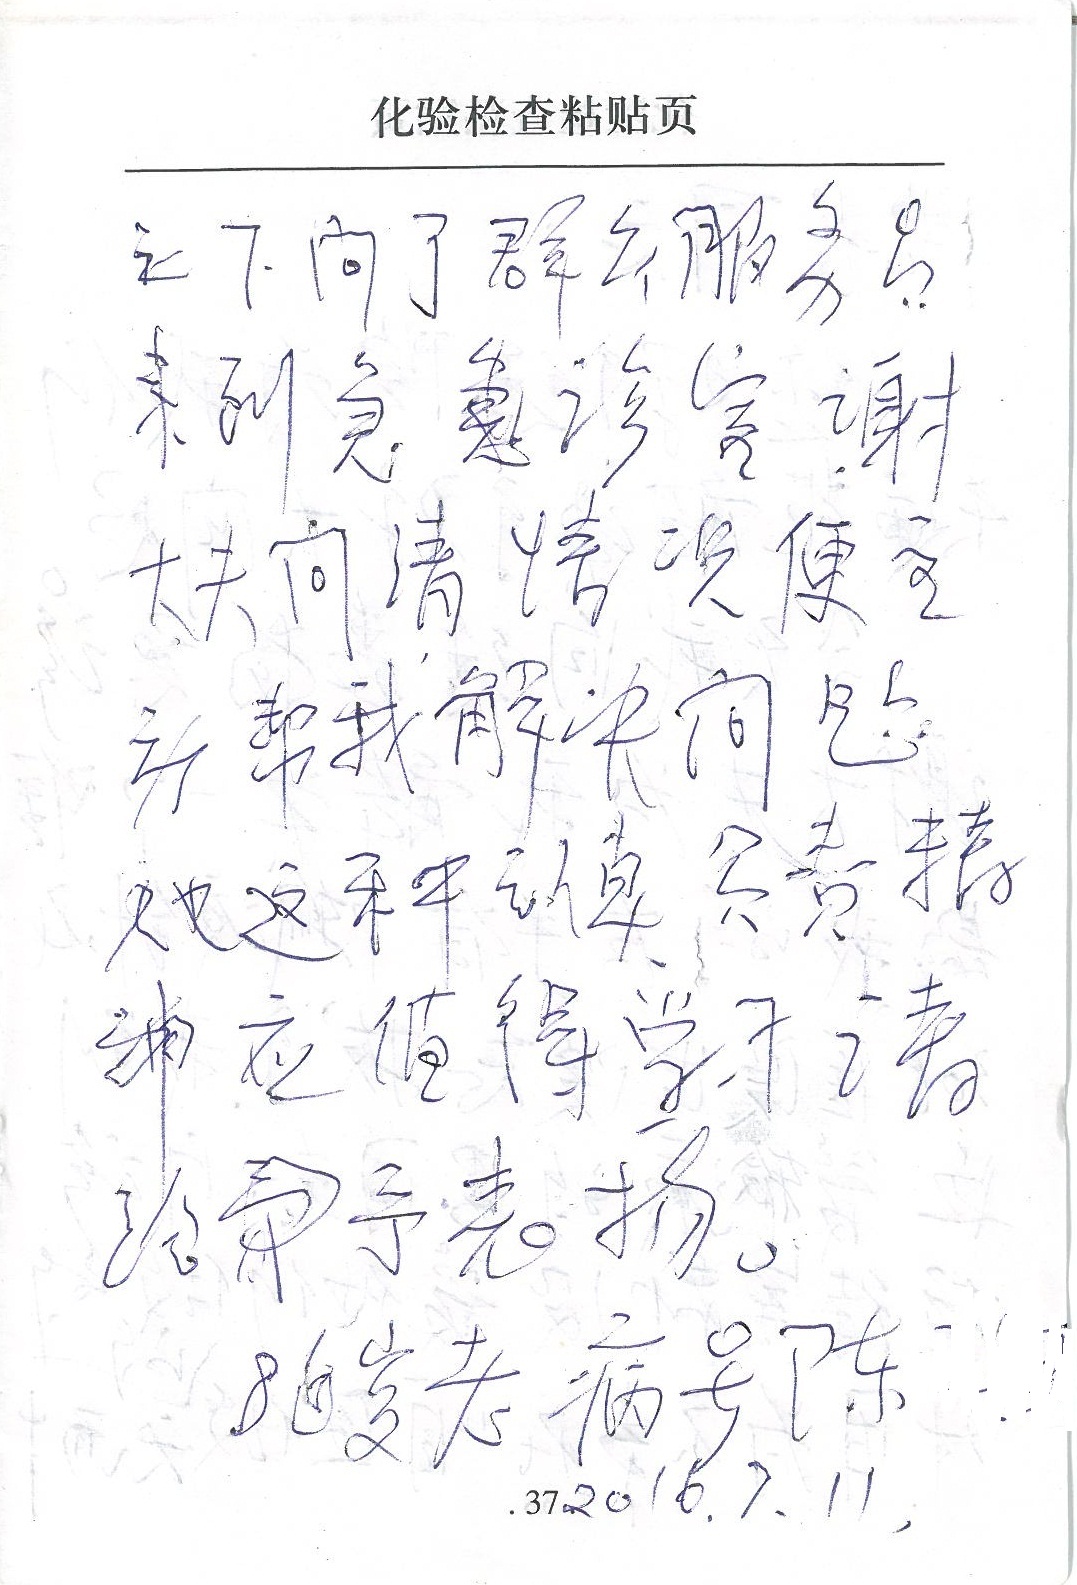 化验检查粘贴页
之下问了群众服务员
来到急诊室谢
大夫问清情况便主
动帮我解决问题
她这种认真负责精
神应值得学习请
给予表扬。
8旬岁老病号陈
.37
2016.7.11.